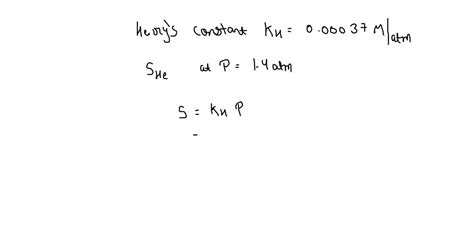 Henry's constant KH = 0.00037 M/atm
SHe at P = 1.4 atm
S = KH P
=